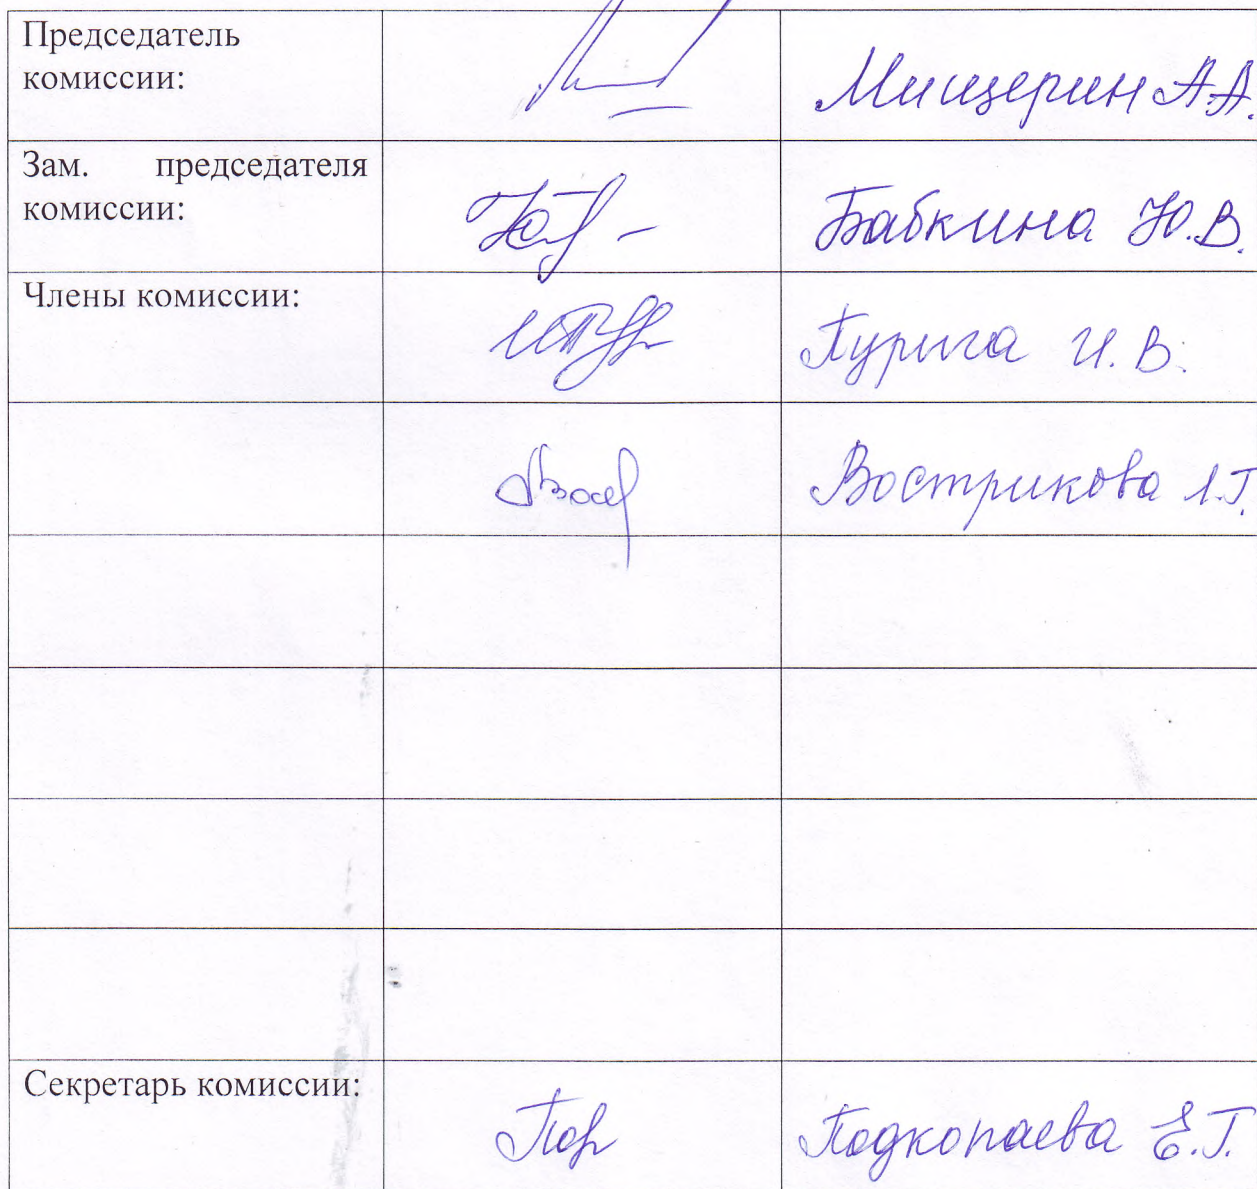 Председатель
комиссии:
Мищерин А.А.
Зам. председателя
комиссии:
Бабкина Ю.В.
Члены комиссии:
Пурига И.В.
Вострикова Л.Г.
Секретарь комиссии:
Подкопаева Е.Г.